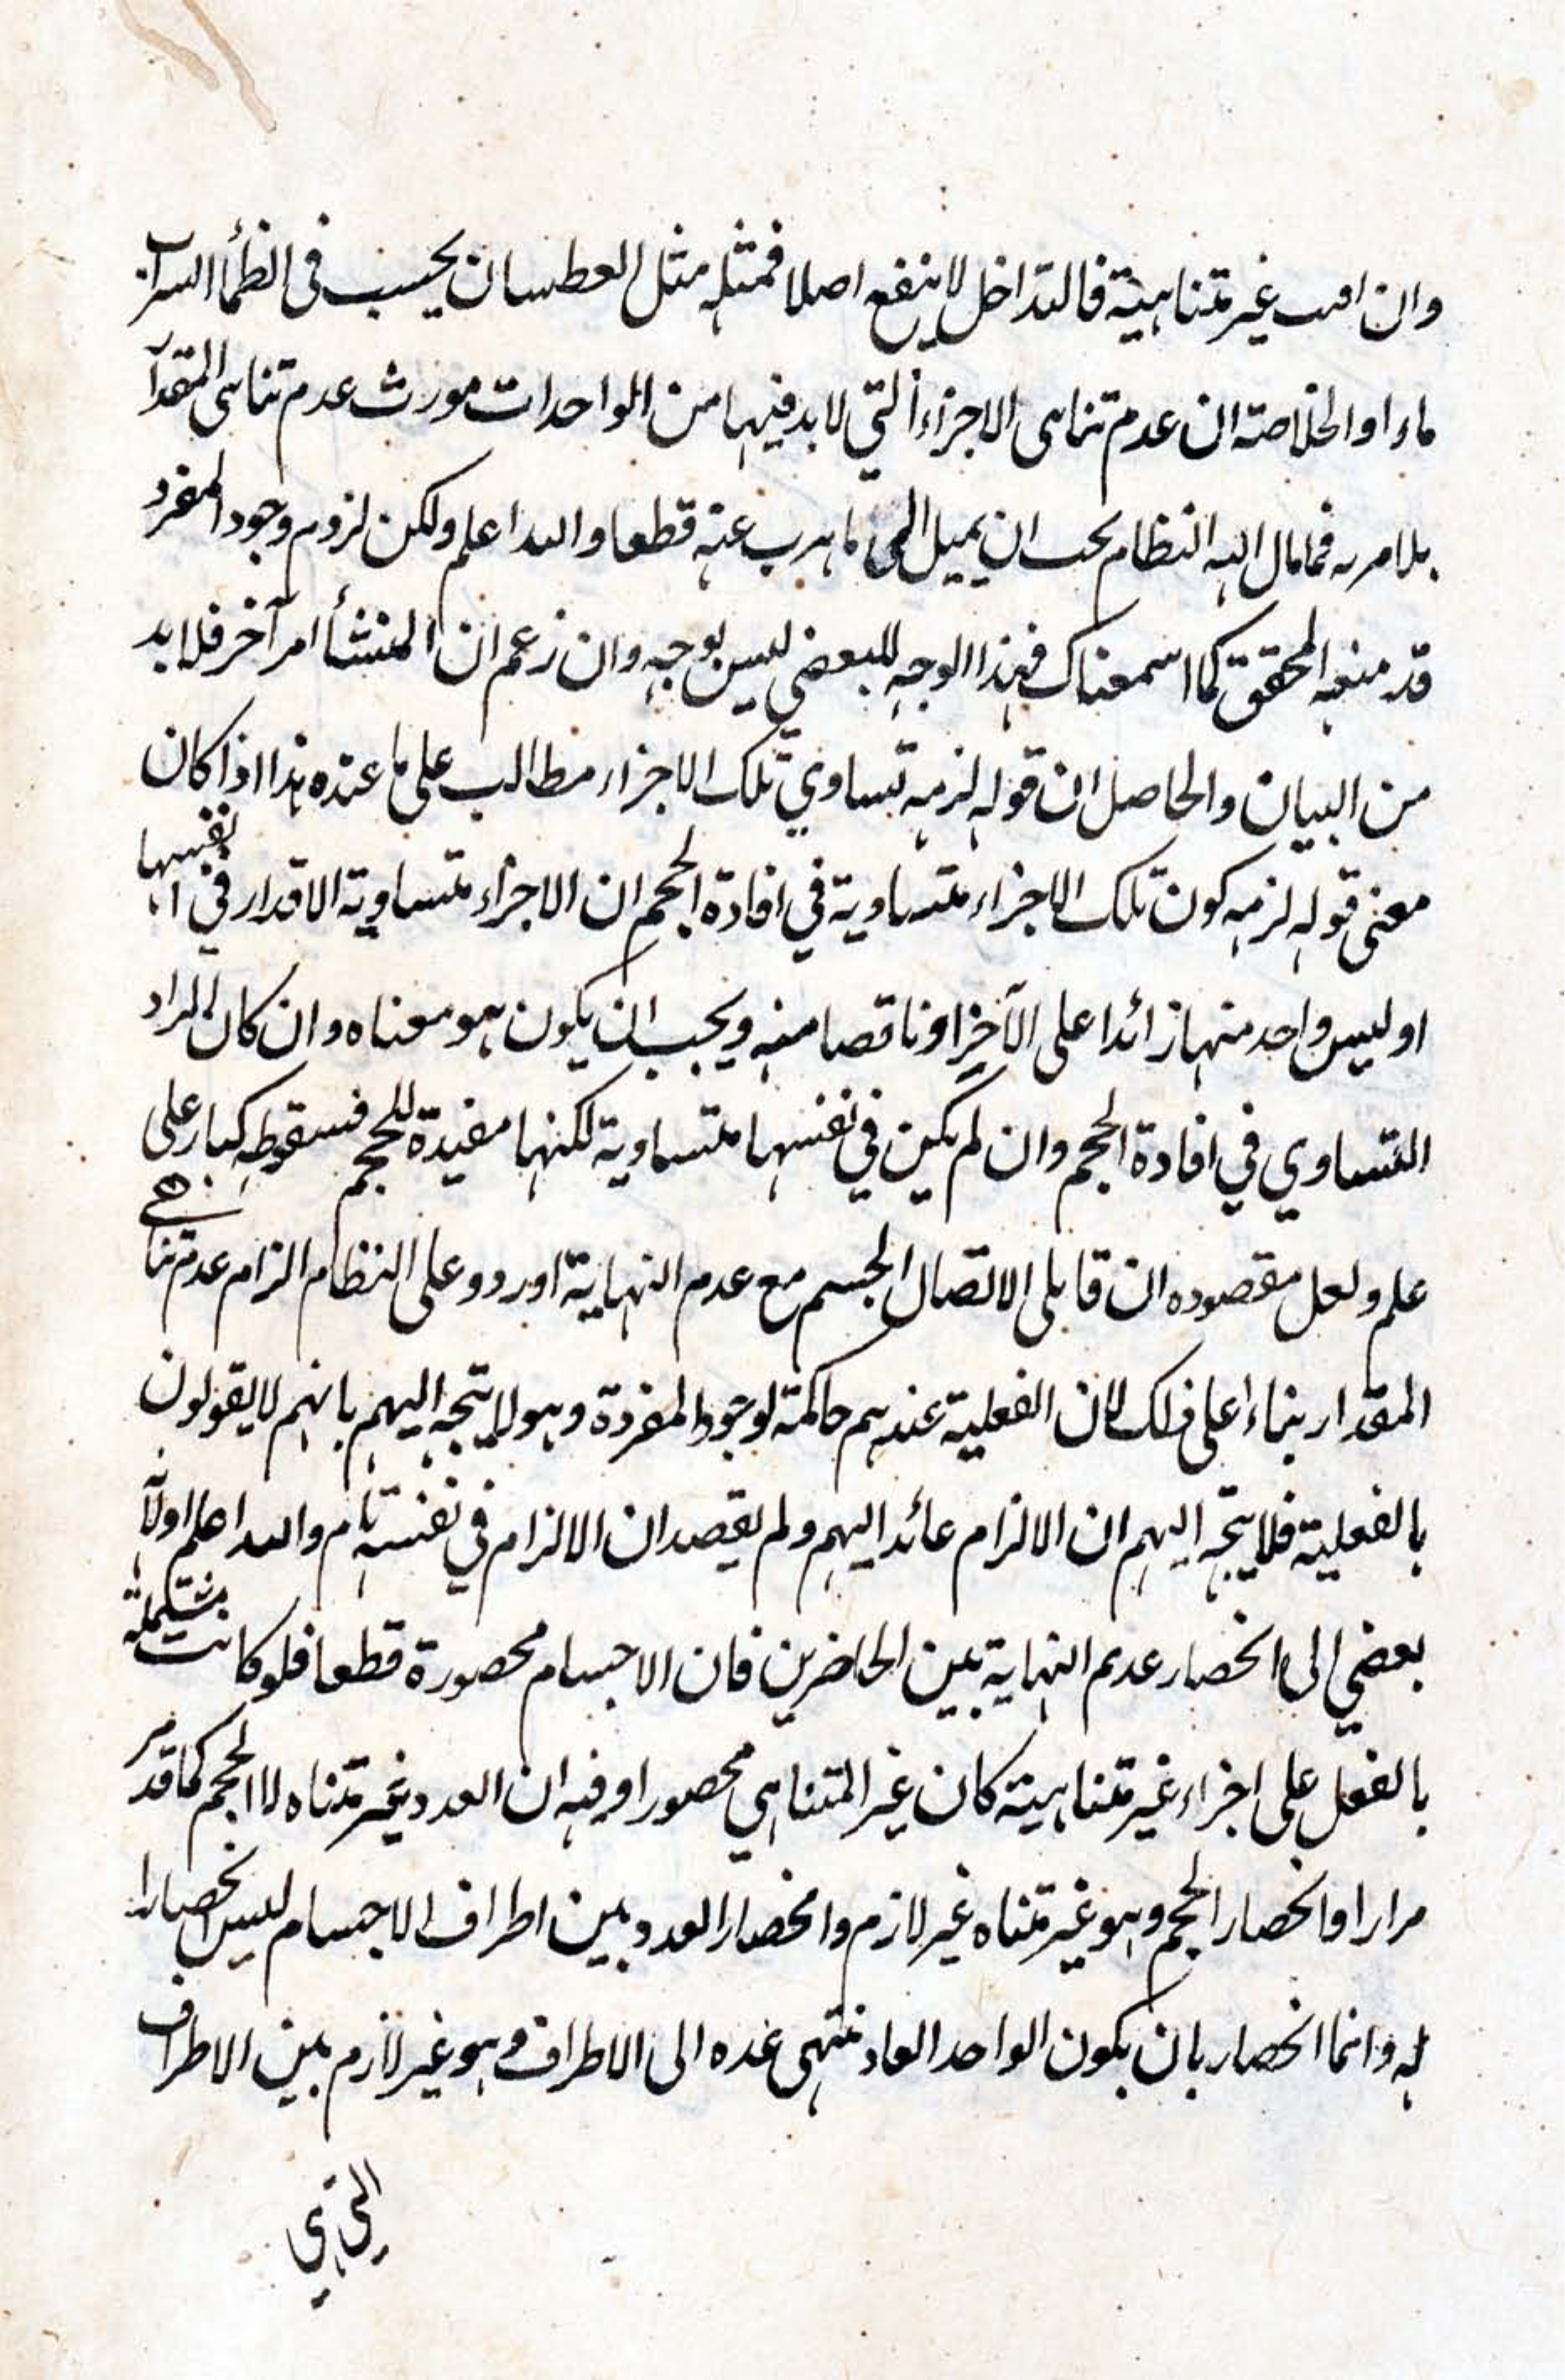 وان غير متناهية فالتداخل لا ينفع اصلا فمثله مثل العطسان يحسب فى الظمأ السراب
ماءا والخلاصة ان عدم تناهى الاجزاء التي لا بد فيها من الواحدات مورث عدم تناهى المقدا
بلا مريه فما مال اليه النظام يحب ان يميل الى ما هرب عنه قطعا والله اعلم ولكن لزوم وجود المفرد
قد منعه المحقق كما اسمعناك فهذا الوجه للبعض ليس بوجه وان زعم ان المنشأ امر آخر فلا بد
من البيان والحاصل ان قوله لزمه تساوي تلك الاجزاء مطالب على ما عنده هذا اذا كان
معنى قوله لزمه كون تلك الاجزاء متساوية في افادة الحجم ان الاجزاء متساوية الاقدار في انفسها
او ليس واحد منها زائدا على الآخر او ناقصا منه ويجب ان يكون هو معناه وان كان المراد
التساوي في افادة الحجم وان لم يكن في نفسها متساوية لكنها مفيدة للحجم فسقوطه كنار على
علم ولعل مقصوده ان قابلى الاتصال الجسم مع عدم النهاية اوردو على النظام الزام عدم تناهى
المقدار بناءا على ذلك لان الفعلية عندهم حاكمة لوجود المفردة وهو لا يتجه اليهم بانهم لا يقولون
بالفعلية فلا يتجه اليهم ان الالزام عائد اليهم ولم يقصد ان الالزام في نفسه تام والله اعلم اولآ
بعضي الى انحصار عدم النهاية بين الحاضرين فان الاجسام محصورة قطعا فلو كانت مشتملة
بالفعل على اجزاء غير متناهية كان غير المتناهي محصورا وفيه ان العدد غير متناه لا الحجم كما قد مر
مرارا وانحصار الحجم وهو غير متناه غير لازم وانحصار العدد بين اطراف الاجسام ليس انحصارا
له وانما انحصار بان يكون الواحد العاد منتهى عده الى الاطراف وهو غير لازم بين الاطراف
التي هي